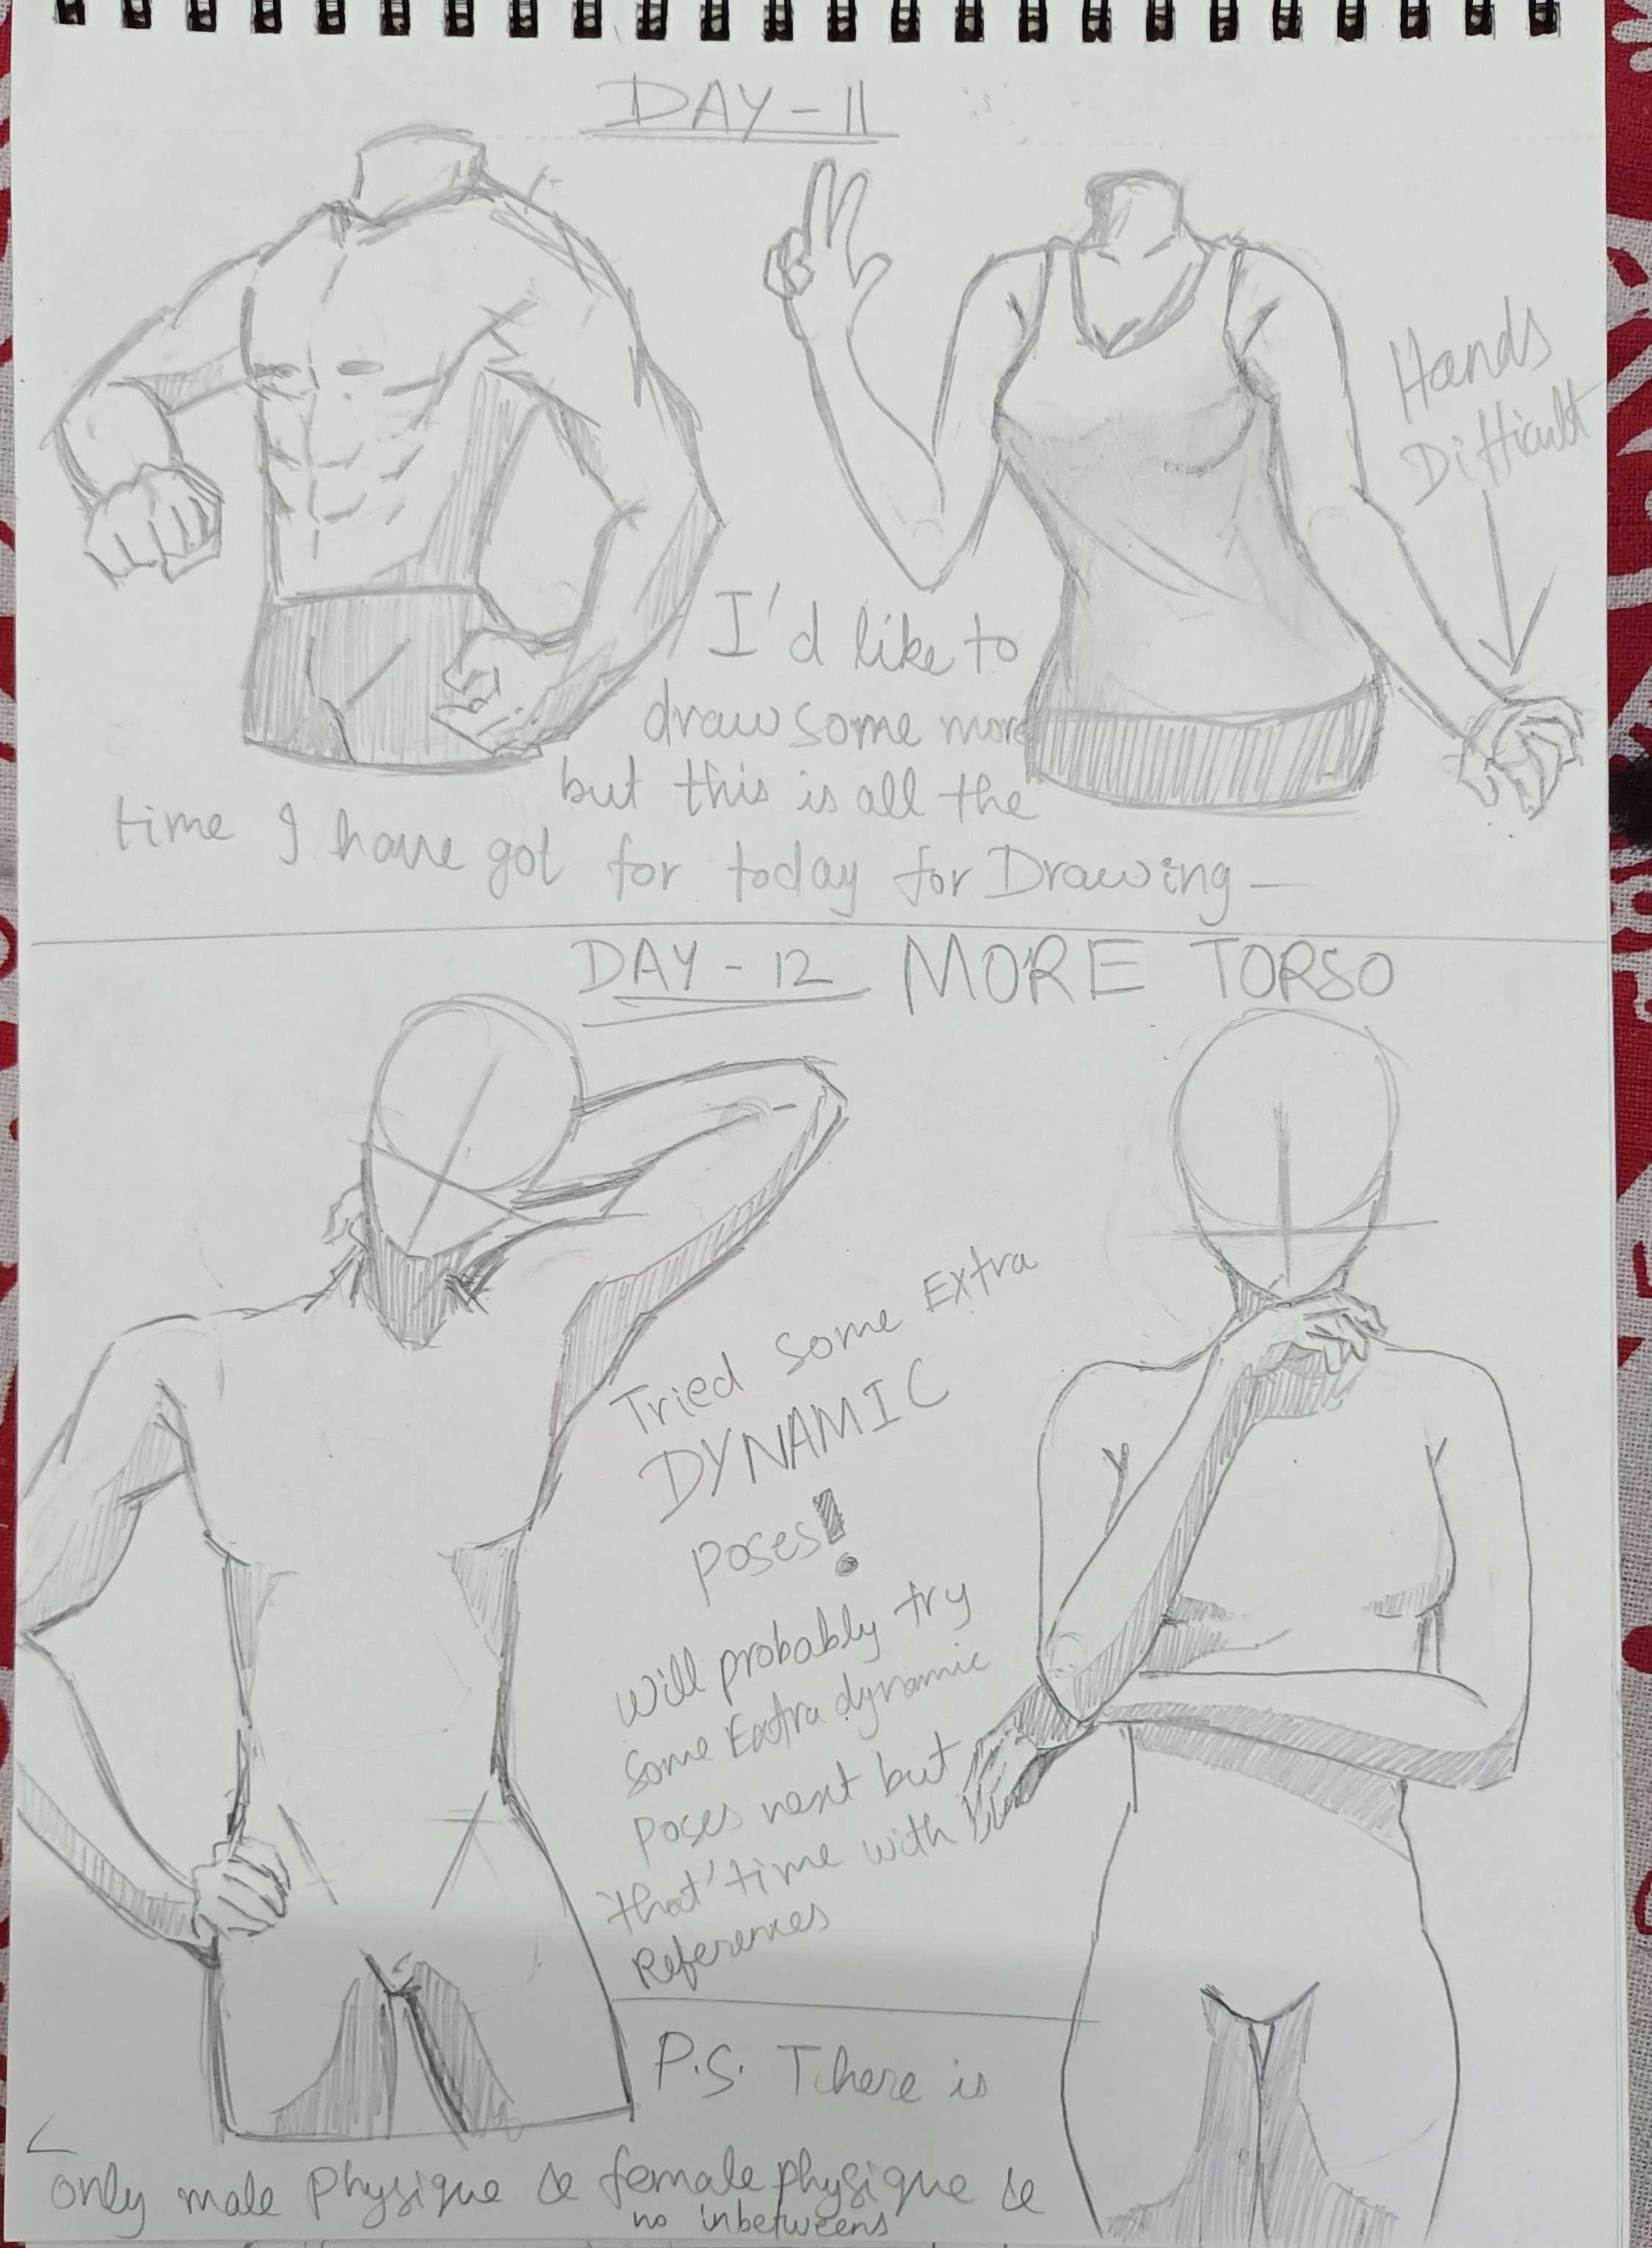 DAY - 11
Hands
Difficult
I'd like to
draw some more
but this is all the
time I have got for today for Drawing —
DAY - 12 MORE TORSO
Tried some Extra
DYNAMIC
poses!
Will probably try
some Extra dynamic
poses next but
that' time with
References
P.S. There is
only male physique & female physique &
no inbetweens